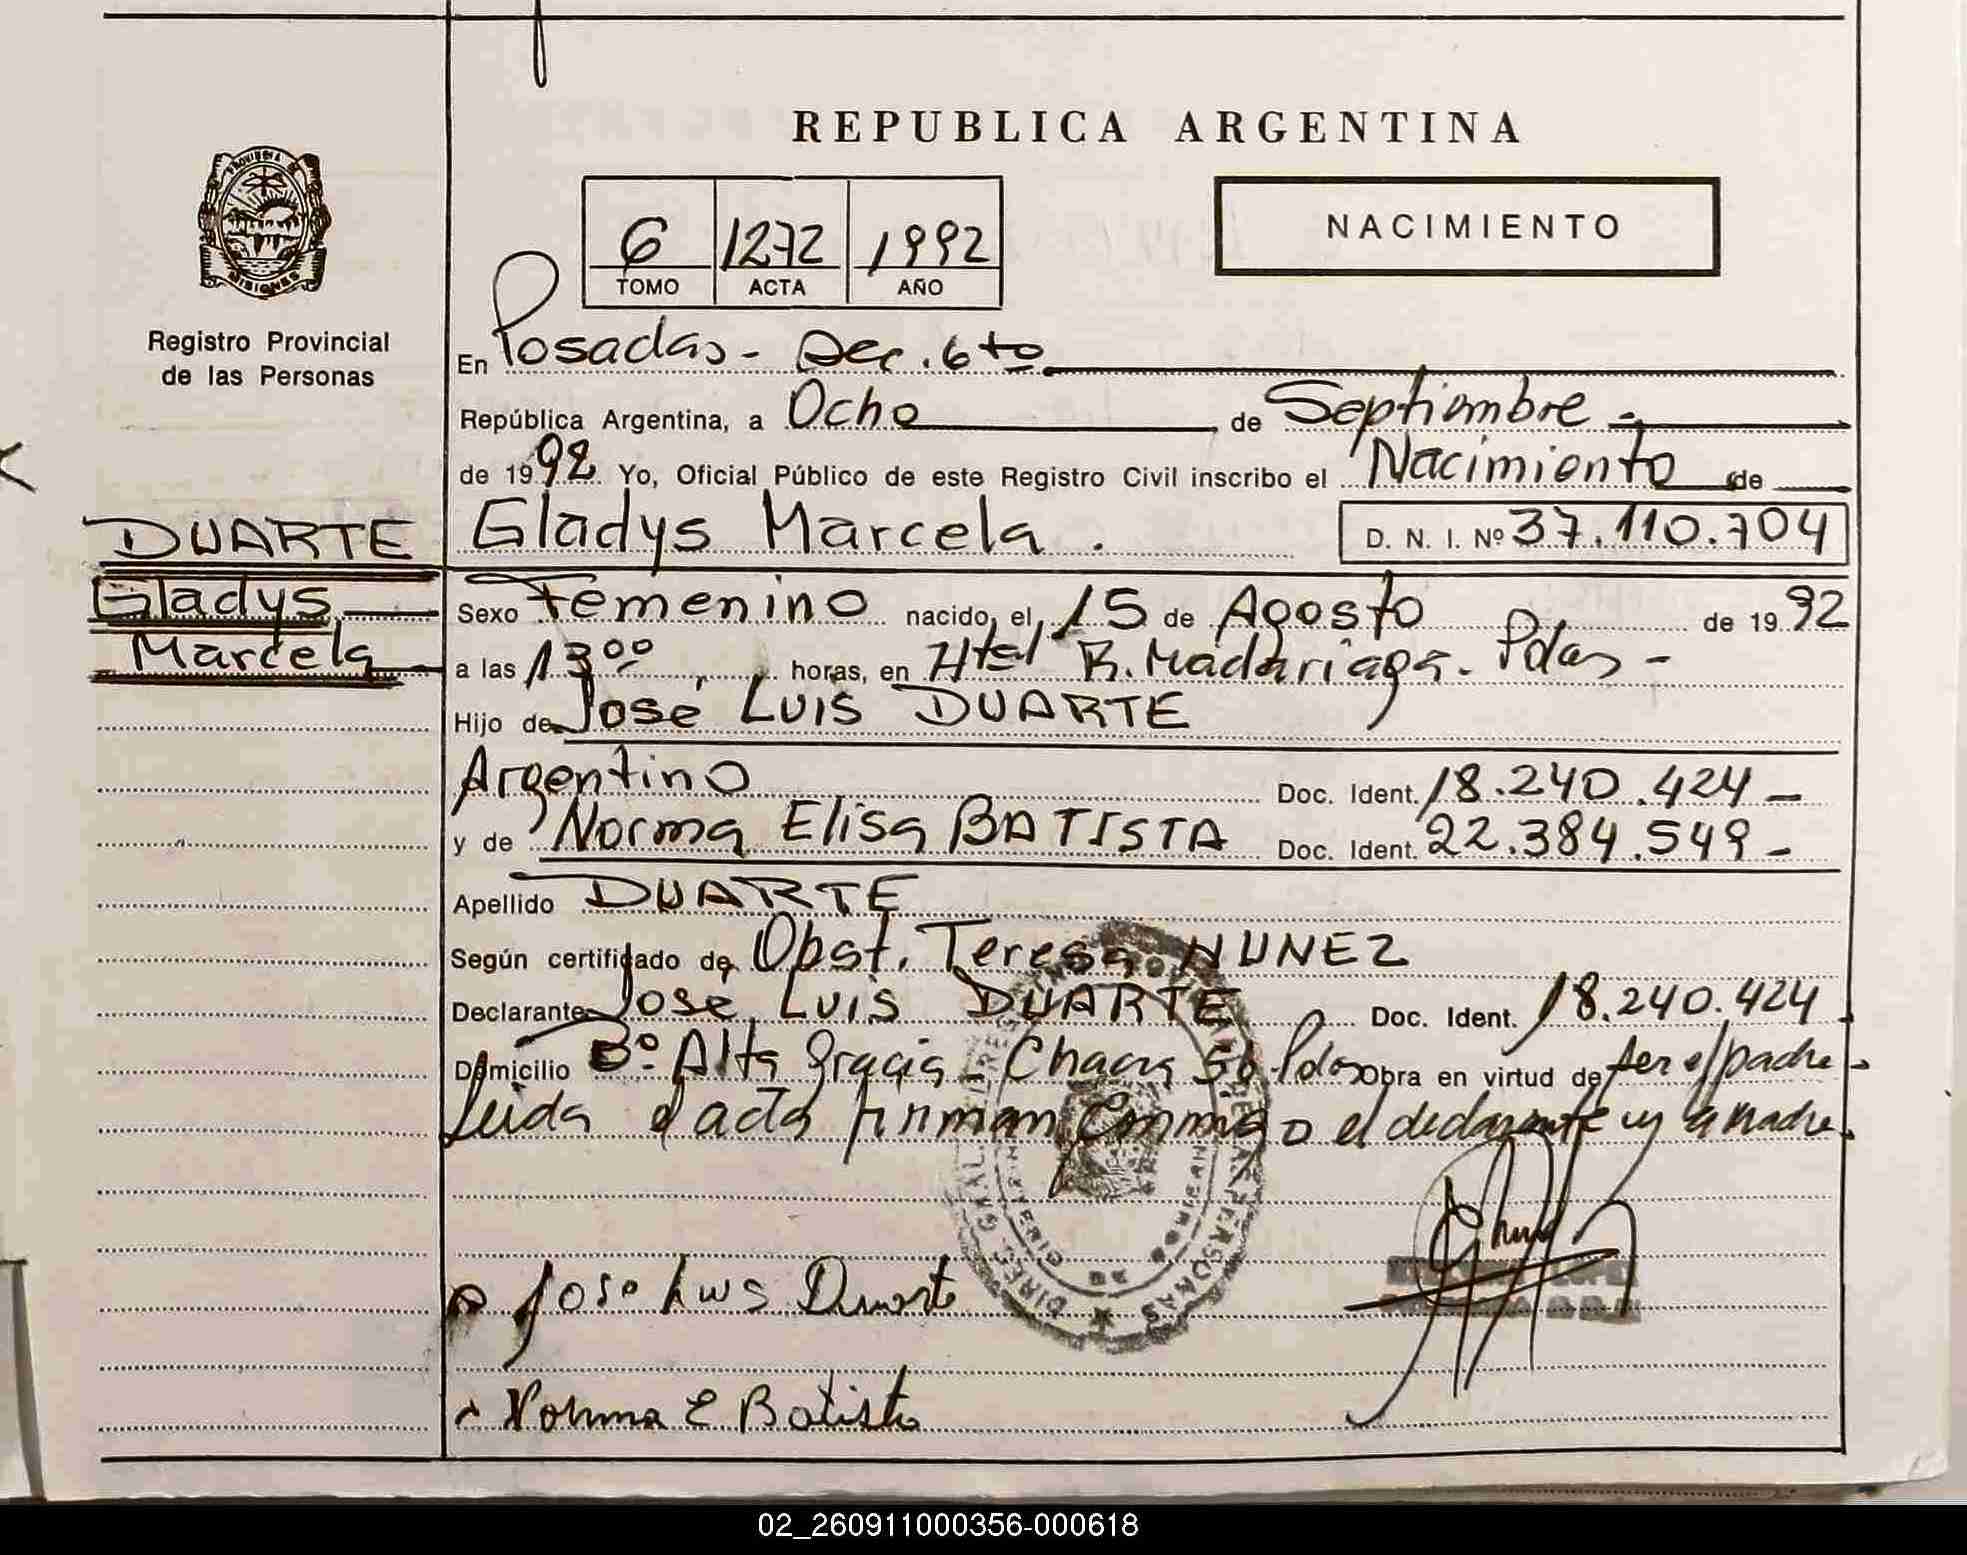 REPUBLICA ARGENTINA
PROVINCIA DE
MISIONES
Registro Provincial
de las Personas
6 1272 1992
TOMO ACTA AÑO
NACIMIENTO
En Posadas - Sec. 6to
República Argentina, a Ocho de Septiembre -
de 1992 Yo, Oficial Público de este Registro Civil inscribo el Nacimiento de
DUARTE
Gladys
Marcela
Gladys Marcela . D. N. I. Nº 37.110.704
Sexo Femenino nacido, el 15 de Agosto de 1992
a las 13ºº horas, en Htal R. Madariaga - Pdas -
Hijo de José Luis DUARTE
Argentino Doc. Ident. 18.240.424 -
y de Norma Elisa BATISTA Doc. Ident. 22.384.549 -
Apellido DUARTE
Según certificado de Obst. Teresa NUNEZ
Declarante José Luis DUARTE Doc. Ident. 18.240.424
Domicilio Bº Alta Gracia - Chacra 56 Pdas Obra en virtud de ser el padre -
Leida el acta firman conmigo el declarante y la madre
Jose Luis Duarte
Norma E Batista
02_260911000356-000618